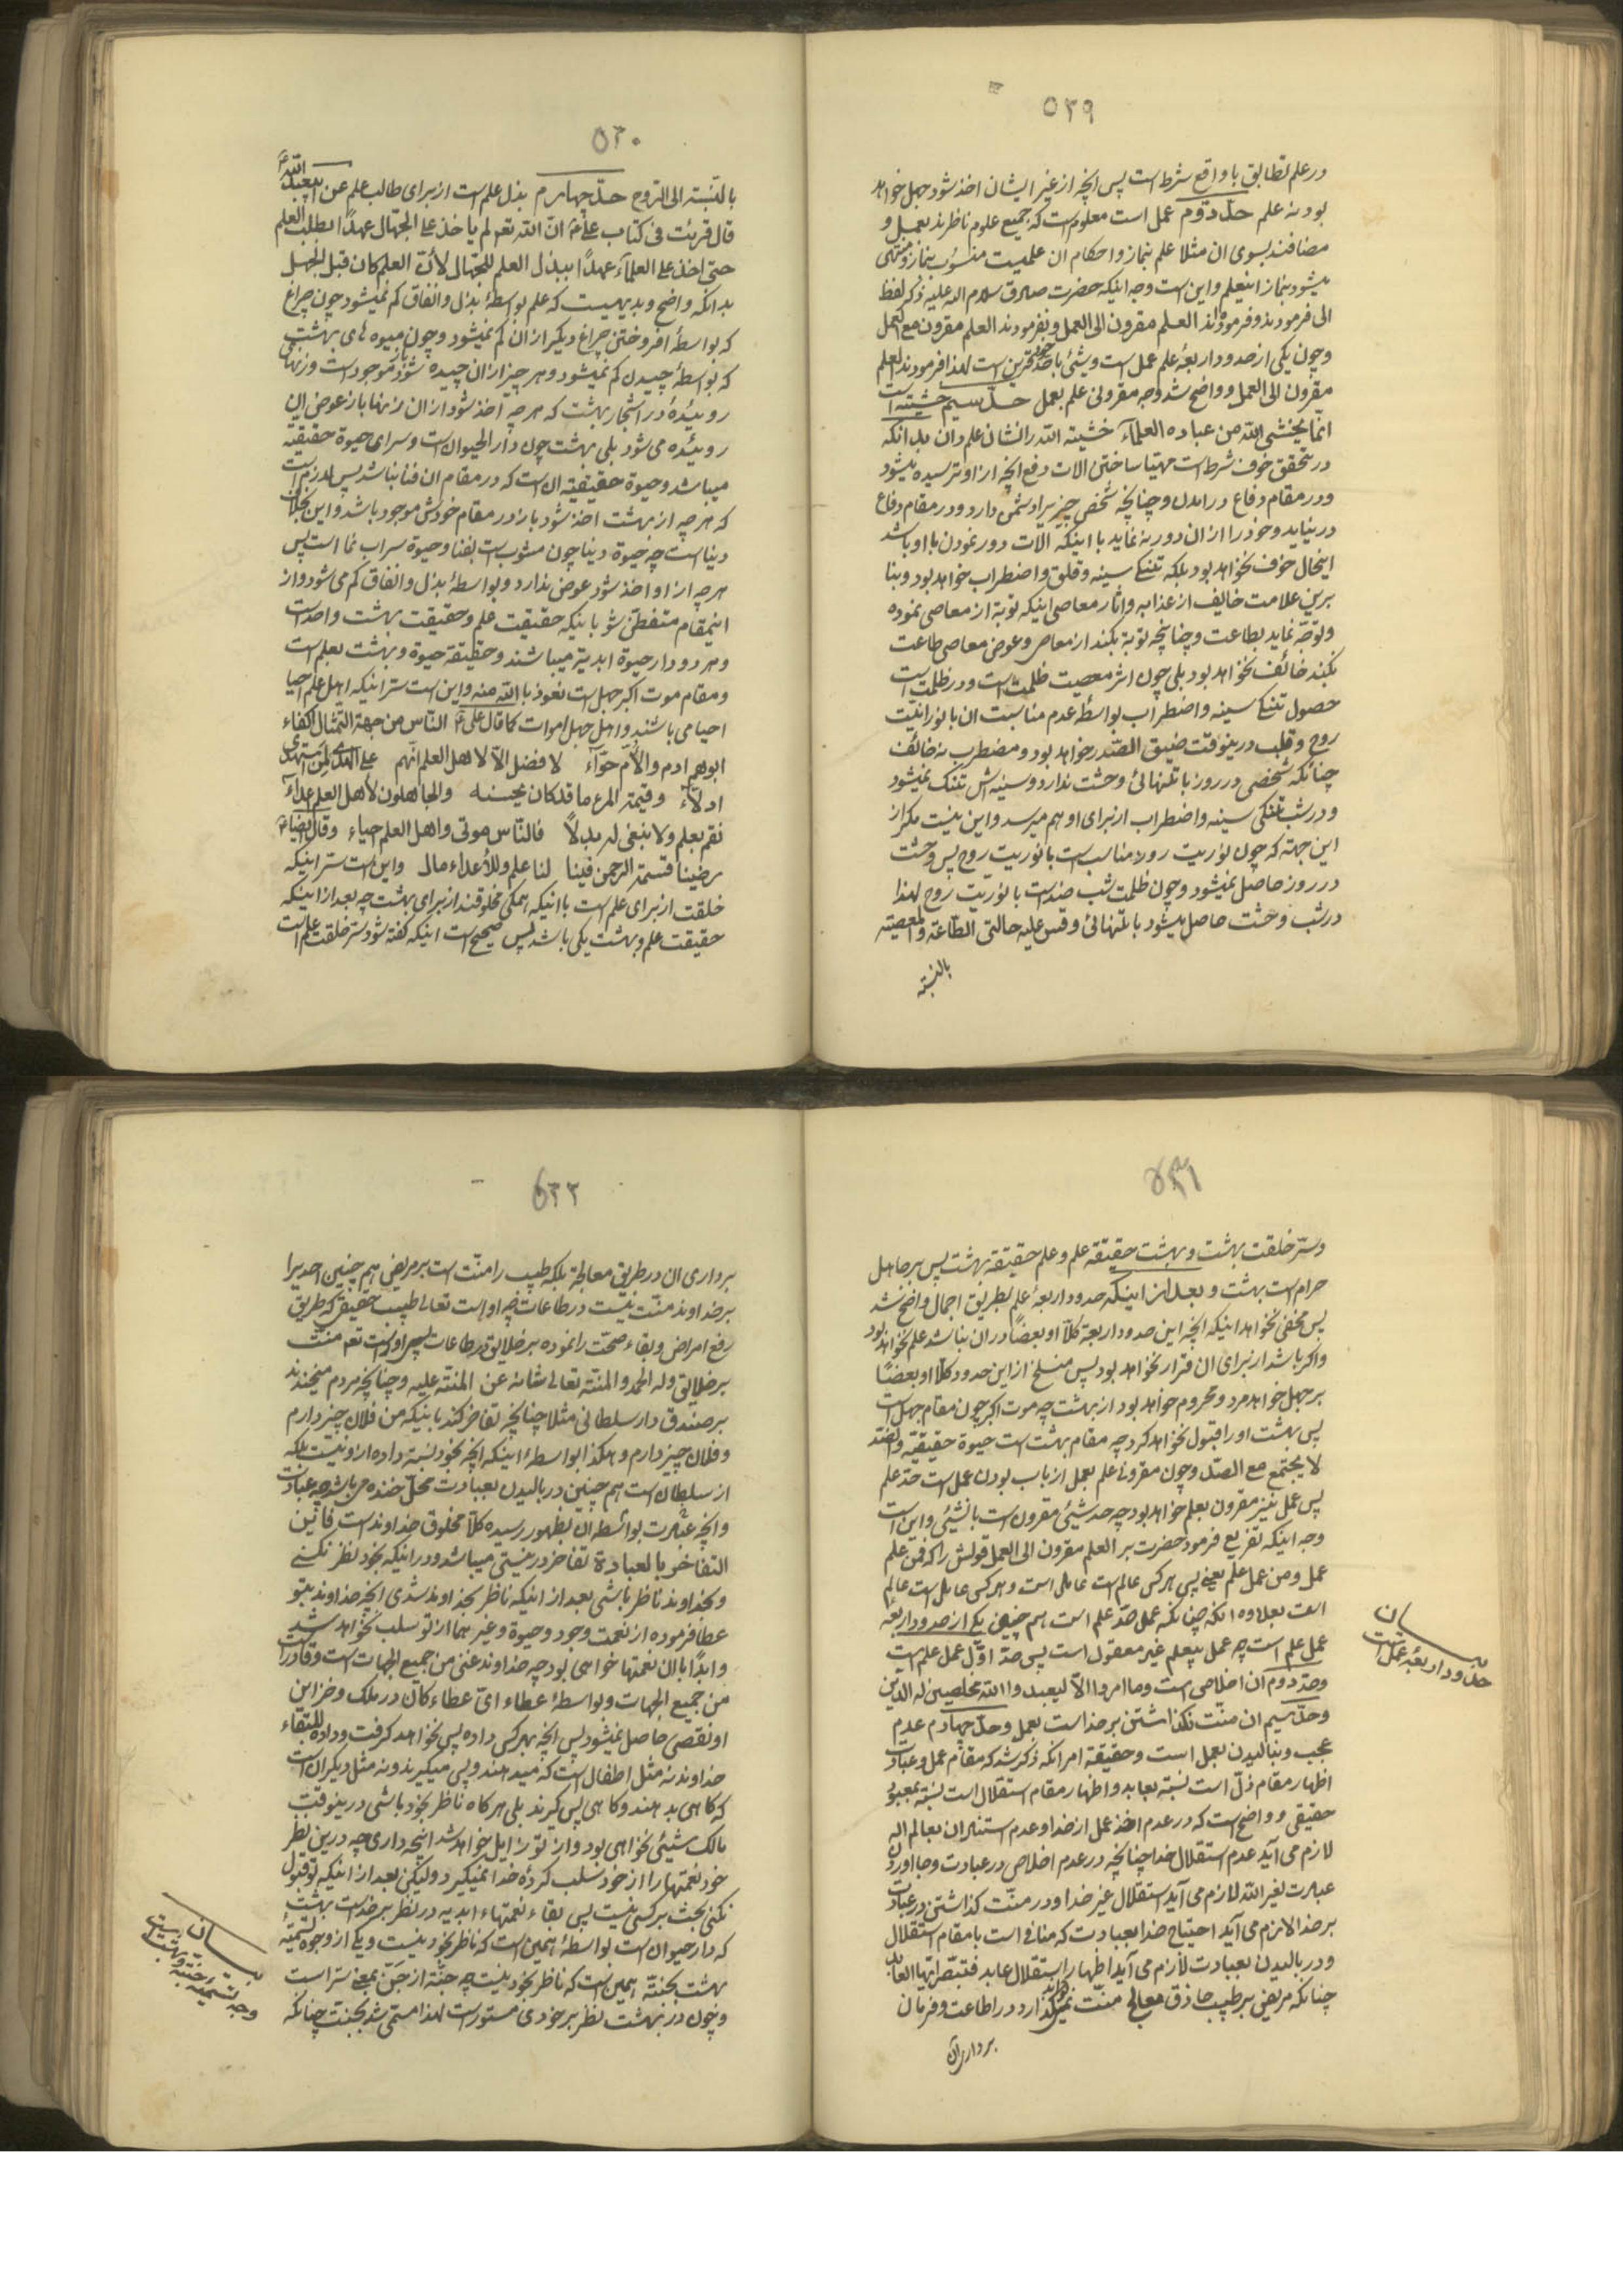 ۵۲۹
در علم تطابق با واقع شرط است پس انچه از غیر ایشان اخذ شود جهل خواهد
بود نه علم حدّ دوّم عمل است معلوم است که جمیع علوم ناظرند بعمل و
مضافند بسوی ان مثلا علم بنماز و احکام ان علمیست منسوب بنماز و منتهی
میشود بنماز اینعلم و این است وجه اینکه حضرت صادق سلام الله علیه ذکر لفظ
الی فرمودند و فرموده‌اند العلم مقرون الی العمل و نفرمودند العلم مقرون مع العمل
و چون یکی از حدود اربعهٔ علم عمل است و شیئ با حدّ خود قرین است لهذا فرمودند العلم
مقرون الی العمل و واضح شد وجه مقرونی علم بعمل حدّ سیم خشیته است
انّما یخشی الله من عباده العلمآء خشیته الله را نشان علم دان بدانکه
در تحقق خوف شرط است مهیّا ساختن الات دفع انچه از او ترسیده میشود
و در مقام دفاع در امدن و چنانچه شخص چیزیرا دشمن دارد و در مقام دفاع
در نیاید و خود را از ان دور نه نماید با اینکه الات دور نمودن با او باشد
اینحال خوف نخواهد بود بلکه تنگی سینه و قلق و اضطراب خواهد بود و بنا
برین علامت خایف از عذاب و اثار معاصی اینکه توبه از معاصی نموده
و توجّه نماید بطاعت و چنانچه توبه نکند از معاصی و عوض معاصی طاعت
نکند خائف نخواهد بود بلی چون اثر معصیت ظلمت است و در ظلمت است
حصول تنگی سینه و اضطراب بواسطهٔ عدم مناسبت ان با نورانیّت
روح و قلب درینوقت ضیق الصّدر خواهد بود و مضطرب نه خائف
چنانکه شخصی در روز با تنهائی وحشت ندارد و سینه اش تنگ نمیشود
و در شب تنگی سینه و اضطراب از برای او بهم میرسد و این نیست مگر از
این جهته که چون نوریت روز مناسب است با نوریت روح پس وحشت
در روز حاصل نمیشود و چون ظلمت شب ضد است با نوریت روح لهذا
در شب وحشت حاصل میشود با تنهائی و قس علیه حالتی الطّاعة و المعصیته
بالنسبته
۵۳۰
بالنسبته الی الرّوح حدّ چهارم بذل علم است از برای طالب علم عن ابیعبد الله ع
قال قرئت فی کتاب علی ع انّ الله تعه لم یاخذ علی الجهّال عهداً بطلب العلم
حتی اخذ علی العلمآء عهداً ببذل العلم للجهّال لأنّ العلم کان قبل الجهل
بدانکه واضح و بدیهیست که علم بواسطهٔ بذل و انفاق کم نمیشود چون چراغ
که بواسطهٔ افروختن چراغ دیگر از ان کم نمیشود و چون میوه های بهشتی
که بواسطهٔ چیدن کم نمیشود و هر چیز از ان چیده شود باز موجود است و زنهای
روئیدهٔ در اشجار بهشت که هر چه اخذ شود از ان زنها باز عوض ان
روئیده می شود بلی بهشت چون دار الحیوان است و سرای حیوة حقیقیّه
میباشد و حیوة حقیقیّه ان است که در مقام ان فنا نباشد پس لازم است
که هر چه از بهشت اخذ شود باز در مقام خودش موجود باشد و این بخلاف
دنیا است چه حیوة دنیا چون مشوب است بفنا و حیوة سراب نما است پس
هر چه از او اخذ شود عوض ندارد و بواسطهٔ بذل و انفاق کم می شود و از
اینمقام متفطّن شو باینکه حقیقت علم و حقیقت بهشت واحد است
و هر دو دار حیوة ابدیّه میباشند و حقیقة حیوة و بهشت بعلم است
و مقام موت اکبر جهل است نعوذ بالله منه و این است سرّ اینکه اهل علم احیا
احیا می باشند و اهل جهل اموات کما قال علی ع النّاس من جهة التّمثال اکفاء
ابوهم ادم والأمّ حوّآء لا فضل الّا لاهل العلم انّهم علی الهدی لمن استهدی
ادلّآء و قیمة المرء ما قد کان یحسنه والجاهلون لأهل العلم اعدآء
نقم بعلم ولا نبغی له بدلاً فالنّاس موتی واهل العلم احیاء وقال ایضاً ع
رضینا قسمة الرحمن فینا لنا علم وللأعداء مال و این است سرّ اینکه
خلقت از برای علم است با اینکه همگی مخلوقند از برای بهشت چه بعد از اینکه
حقیقت علم و بهشت یکی باشد پس صحیح است اینکه گفته شود سرّ خلقت علم است
۵۳۱
و سرّ خلقت بهشت و بهشت حقیقة علم و علم حقیقة بهشت پس بر جاهل
حرام است بهشت و بعد از اینکه حدود اربعهٔ علم بطریق اجمال واضح شد
پس مخفی نخواهد اینکه انچه این حدود اربعة کلّاً او بعضاً در ان نباشد علم نخواهد بود
و اگر باشد از برای ان قرار نخواهد بود پس منسلخ از این حدود کلّاً او بعضاً
بر جهل خواهد مرد و محروم خواهد بود از بهشت چه موت اکبر چون مقام جهل است
پس بهشت او را قبول نخواهد کرد چه مقام بهشت است حیوة حقیقیّه و الضّد
لا یجتمع مع الضدّ و چون مقرونی علم بعمل از باب بودن عمل است حدّ علم
پس عمل نیز مقرون بعلم خواهد بود چه حد شیئ مقرون است با شیئی و این است
وجه اینکه تفریع فرمود حضرت بر العلم مقرون الی العمل قولش را که فمن علم
عمل و من عمل علم یعنی پس هر کس عالم است عامل است و هر کس عامل است عالم
است بعلاوه انکه چنانکه عمل حدّ علم است هم چنین یکی از حدود اربعه
عمل علم است چه عمل بیعلم غیر معقول است پس حدّ اوّل عمل علم است
و حدّ دوم ان اخلاص است و ما امروا الّا لیعبدوا الله مخلصین له الدین
و حدّ سیم ان منّت نگذاشتن بر خدا است بعمل و حدّ چهارم عدم
عجب و ببالیدن بعمل است و حقیقة امر انکه ذکر شد که مقام عمل و عبادت
اظهار مقام ذلّ است نسبة بعابد و اظهار مقام استقلال است نسبة بمعبود
حقیقی و واضح است که در عدم اخذ عمل از خدا و عدم استناد ان بعالم اله
لازم می آید عدم استقلال خدا چنانچه در عدم اخلاص در عبادت و بجا اوردن
عبادت لغیر الله لازم می آید استقلال غیر خدا و در منّت گذاشتن در عبادت
بر خدا لازم می آید احتیاج خدا بعبادت که منافی است با مقام استقلال
و در بالیدن بعبادت لازم می آید اظهار استقلال عابد فتبصّر ایّها العابد
چنانکه مریض بر طبیب حاذق معالج منّت نمیگذارد در اطاعت و فرمان
برداری ان
بیان
حدود اربعهٔ عمل است
۵۳۲
برداری ان در طریق معالجة بلکه طبیب را منّت است بر مریض هم چنین احدیرا
بر خداوند منّت نیست در طاعات چه او است تعالی طبیب حقیقی که طریق
رفع امراض و بقاء صحّت را نموده بر خلایق در طاعات پس او راست تعه منّت
بر خلایق وله الحمد والمنّة تعالی شانه عن المنّة علیه و چنانچه مردم میخندند
بر صندوق دار سلطانی مثلا چنانچه تفاخر کند باینکه من فلان چیز دارم
و فلان چیز دارم و هکذا بواسطهٔ اینکه انچه بخود نسبة داده از او نیست بلکه
از سلطان است هم چنین در بالیدن بعبادت محلّ خنده می باشد چه عبادت
و انچه عبادت بواسطه ان بظهور رسیده کلّاً مخلوق خداوند است فأین
التفاخر بالعبادة تفاخر در نیستی میباشد و در اینکه بخود نظر نکنی
و بخداوند ناظر باشی بعد از اینکه ناظر بخداوند شدی انچه خداوند بتو
عطا فرموده از نعمت وجود و حیوة و غیر هما از تو سلب نخواهد شد
و ابداً با ان نعمتها خواهی بود چه خداوند غنی من جمیع الجهات است و قادر است
من جمیع الجهات و بواسطهٔ عطاء ایّ عطاء کان در ملک و خزاین
او نقصی حاصل نمیشود پس انچه بهر کس داده پس نخواهد گرفت و داده للبقاء
خداوند نه مثل اطفال است که میدهند و پس میگیرند و نه مثل دیگران است
که گاهی بدهند و گاهی پس گیرند بلی هر گاه ناظر بخود باشی درینوقت
مالک شیئی نخواهی بود و از تو زایل خواهد شد انچه داری چه درین نظر
خود نعمتها را از خود سلب کردهٔ خدا نمیگیرد ولیکن بعد از اینکه تو قبول
نکنی بحث بر کسی نیست پس بقاء نعمتهاء ابدیه در نظر بر خداست بهشت
که دار حیوان است بواسطهٔ همین است که ناظر بخود نیست و یکی از وجوه تسمیّهٔ
بهشت بجنّة همین است که ناظر بخود نیست چه جنّة از جَنّ بمعنی ستر است
و چون در بهشت نظر بر خودی مستور است لهذا مسمّی شد بجنّت چنانکه
بیان
وجه تسمیهٔ جنّة و بهشت است